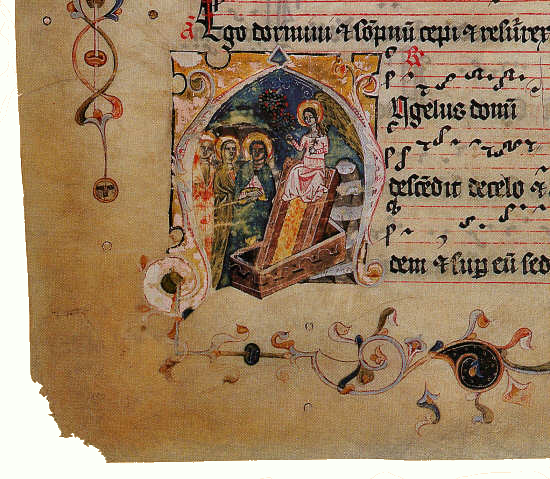 a̅ Ego dormiui ⁊ so̅pnu̅ cepi ⁊ resur̅rex
R
Ngelus domi̅
desce̅dit decelo ⁊
dem ⁊ sup eu̅ sed